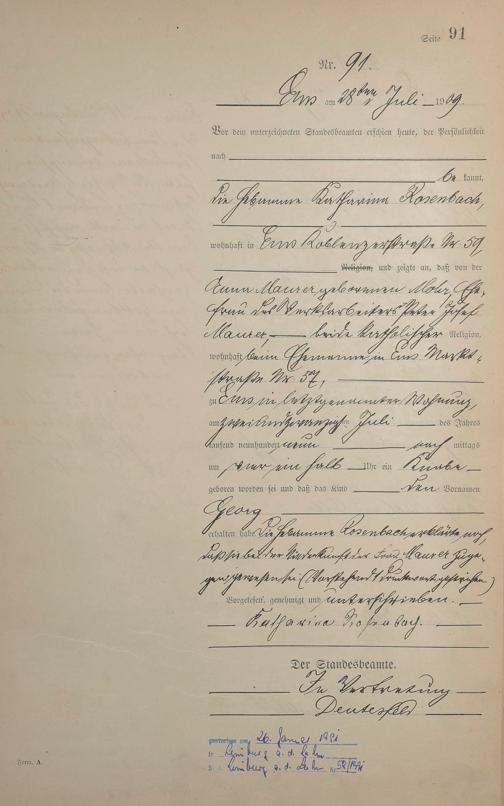 Seite 91
Nr. 91.
Ems am 28ten Juli 1909.
Vor dem unterzeichneten Standesbeamten erschien heute, der Persönlichkeit
nach
be kannt,
die Hebamme Katharina Rosenbach,
wohnhaft in Ems Koblenzerstraße Nr. 59,
Religion, und zeigte an, daß von der
Anna Maurer geborenen Mohr, Ehe-
frau des Werksarbeiters Peter Josef
Maurer, beide katholischer Religion,
wohnhaft beim Ehemanne, in Ems Markt-
straße Nr. 57,
zu Ems, in letztgenannter Wohnung,
am zweiundzwanzigten Juli des Jahres
tausend neunhundert neun nach mittags
um vier ein halb Uhr ein Knabe
geboren worden sei und daß das Kind den Vornamen
Georg
erhalten habe. Die Hebamme Rosenbach erklärte noch,
daß sie bei der Niederkunft der Frau Maurer zuge-
gen gewesen sei (Vorstehend 1 Druckwort gestrichen.)
Vorgelesen, genehmigt und unterschrieben.
Katharina Rosenbach.
Der Standesbeamte.
In Vertretung
gestorben am 26. Januar
Limburg a. d. Lahn
Limburg a. d. Lahn
Form. A.